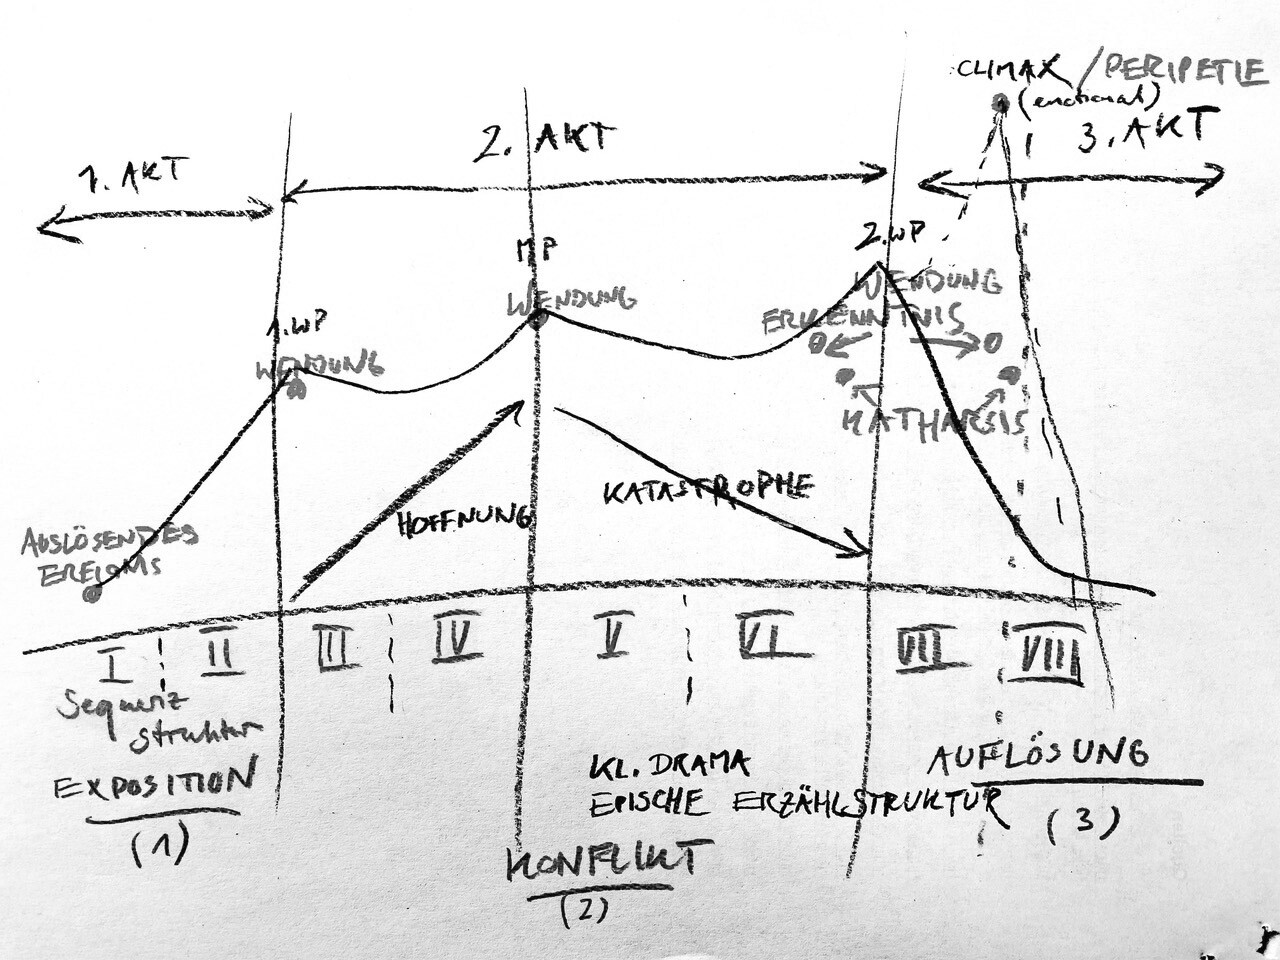 CLIMAX / PERIPETIE
(emotional)
1. AKT
2. AKT
3. AKT
MP
2. WP
WENDUNG
WENDUNG
ERKENNTNIS
1. WP
WENDUNG
KATHARSIS
HOFFNUNG
KATASTROPHE
AUSLÖSENDES
EREIGNIS
I II III IV V VI VII VIII
Sequenz
struktur
EXPOSITION
(1)
KL. DRAMA
EPISCHE ERZÄHLSTRUKTUR
AUFLÖSUNG
(3)
KONFLIKT
(2)